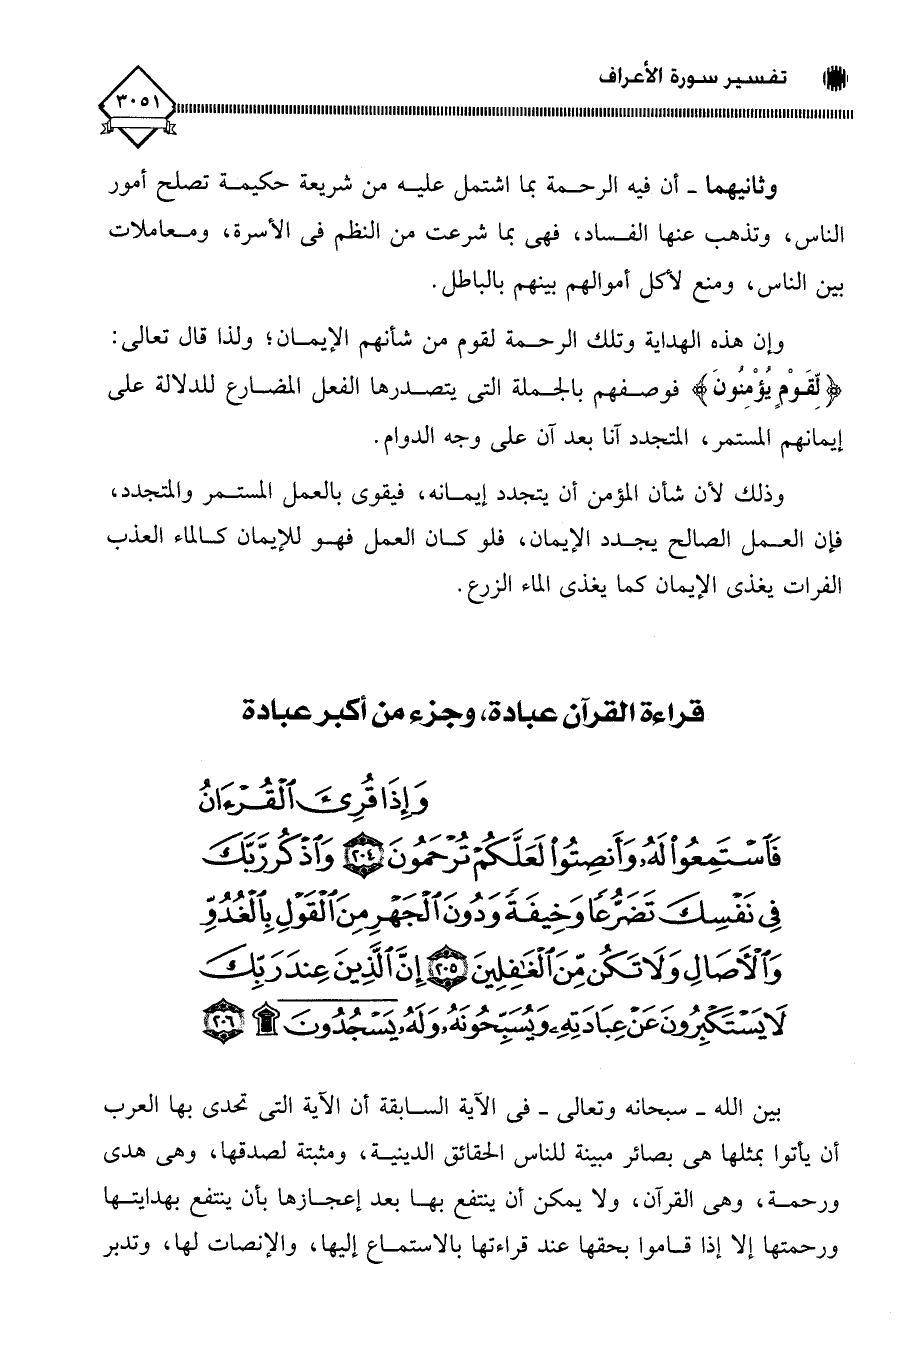 تفسير سورة الأعراف
٣٠٥١
وثانيهما ـ أن فيه الرحمة بما اشتمل عليه من شريعة حكيمة تصلح أمور
الناس، وتذهب عنها الفساد، فهى بما شرعت من النظم فى الأسرة، ومعاملات
بين الناس، ومنع لأكل أموالهم بينهم بالباطل.
وإن هذه الهداية وتلك الرحمة لقوم من شأنهم الإيمان؛ ولذا قال تعالى:
﴿لِّقَوْمٍ يُؤْمِنُونَ﴾ فوصفهم بالجملة التى يتصدرها الفعل المضارع للدلالة على
إيمانهم المستمر، المتجدد آنا بعد آن على وجه الدوام.
وذلك لأن شأن المؤمن أن يتجدد إيمانه، فيقوى بالعمل المستمر والمتجدد،
فإن العمل الصالح يجدد الإيمان، فلو كان العمل فهو للإيمان كالماء العذب
الفرات يغذى الإيمان كما يغذى الماء الزرع.
قراءة القرآن عبادة، وجزء من أكبر عبادة
وَإِذَا قُرِئَ ٱلْقُرْءَانُ
فَٱسْتَمِعُوا۟ لَهُۥ وَأَنصِتُوا۟ لَعَلَّكُمْ تُرْحَمُونَ ٢٠٤ وَٱذْكُر رَّبَّكَ
فِى نَفْسِكَ تَضَرُّعًا وَخِيفَةً وَدُونَ ٱلْجَهْرِ مِنَ ٱلْقَوْلِ بِٱلْغُدُوِّ
وَٱلْأَصَالِ وَلَا تَكُن مِّنَ ٱلْغَٰفِلِينَ ٢٠٥ إِنَّ ٱلَّذِينَ عِندَ رَبِّكَ
لَا يَسْتَكْبِرُونَ عَنْ عِبَادَتِهِۦ وَيُسَبِّحُونَهُۥ وَلَهُۥ يَسْجُدُونَ ۩ ٢٠٦
بين الله ـ سبحانه وتعالى ـ فى الآية السابقة أن الآية التى تحدى بها العرب
أن يأتوا بمثلها هى بصائر مبينة للناس الحقائق الدينية، ومثبتة لصدقها، وهى هدى
ورحمة، وهى القرآن، ولا يمكن أن ينتفع بها بعد إعجازها بأن ينتفع بهدايتها
ورحمتها إلا إذا قاموا بحقها عند قراءتها بالاستماع إليها، والإنصات لها، وتدبر